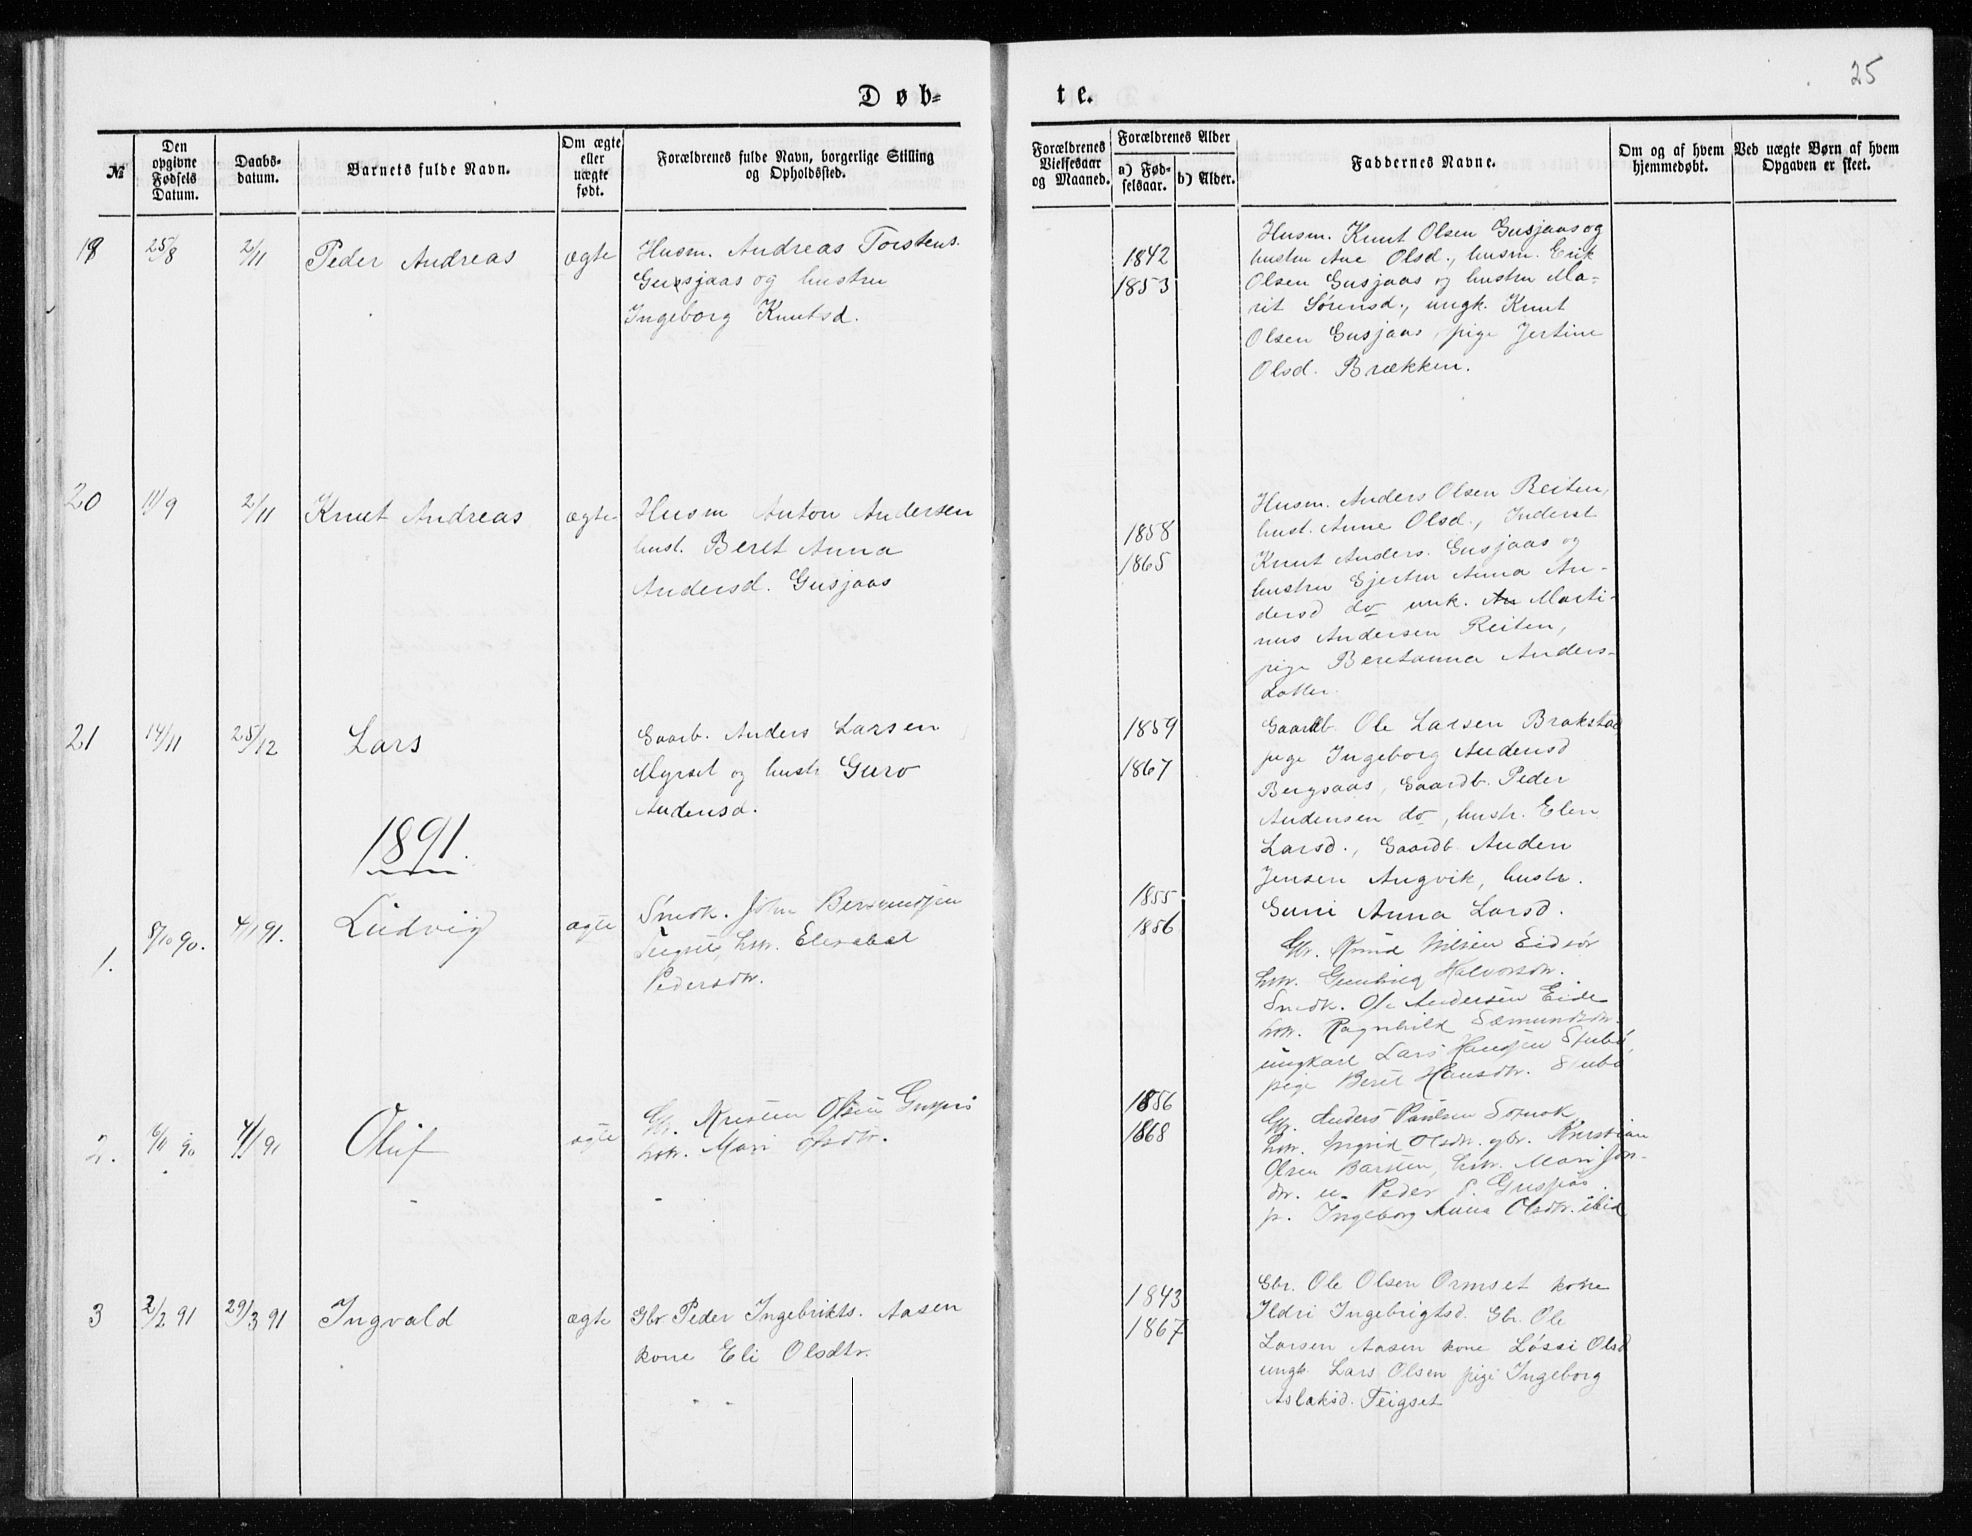 25
Døb-
te.
№
Den opgivne Fødsels Datum.
Daabs-datum.
Barnets fulde Navn.
Om ægte eller uægte født.
Forældrenes fulde Navn, borgerlige Stilling og Opholdssted.
Forældrenes Vielsesaar og Maaned.
Forældrenes Alder
a) Fødselsaar.
b) Alder.
Faddernes Navne.
Om og af hvem hjemmedøbt.
Ved uægte Børn af hvem Opgaven er skeet.
25/8
2/11
Peder Andreas
ægte
Husm. Andreas Torstens.
Gusjaas og hustru
Ingeborg Knutsd.
1842
1853
Husm. Knut Olsen Gusjaas og
hustru Ane Olsd., husm. Erik
Olsen Gusjaas og hustru Ma-
rit Sørensd., ungk. Knut
Olsen Gusjaas, pige Jertine
Olsd. Brækken.
20
11/9
2/11
Knut Andreas
ægte
Husm Anton Andersen
hust. Beret Anna
Andersd. Gusjaas
1858
1865
Husm. Anders Olsen Reiten,
hust. Anne Olsd., Inderst
Knut Anders. Gusjaas og
hustru Gjertru Anna An-
dersd do unk. An Marti-
nus Andersen Reiten,
pige Beretanna Anders-
datter.
21
14/11
25/12
Lars
Gaarb. Anders Larsen
Myrset og hustr Guro
Andersd.
1859
1867
Gaardb. Ole Larsen Brakstad
pige Ingeborg Andersd
Bergsaas, Gaardb. Peder
Andersen do, hustr. Elen
Larsd., Gaardb. Anden
Jensen Angvik, hustr.
Guri Anna Larsd.
1891.
1.
8/10 90.
4/1 91.
Ludvig
ægte
Smdk. John
hstr. Elisabet
Pedersdtr.
1855
1856
Gbr. Knud Nilsen Eidsør
hstr. Halvorsdtr.
Smdk. Ole Andersen Eide
hstr. Ragnhild Sæmundsdtr.
ungkarl Lars Hansen Stubø
pige Berit Hansdtr. Stubø
2.
6/11 90
4/1 91
Oluf
ægte
Gbr. Kristen Olsen Gusjås
hstr. Mari Olsdtr.
1856
1868
Gbr. Anders Paulsen
hstr. Ingrid Olsdtr. gbr. Kristian
Olsen Barsten, hstr. Mari Jon-
dtr. u. Peder P. Gusjås
p. Ingeborg Anna Olsdtr. ibid
3
2/2 91
29/3 91
Ingvald
ægte
Gbr Peder Ingebrikts. Aasen
kone Eli Olsdtr.
1843
1867
Gbr. Ole Olsen Ormset kone
Ildri Ingebrigtsd. Gbr. Ole
Larsen Aasen kone Løssi Olsd
ungk. Lars Olsen pige Ingeborg
Aslaksd. Teigset